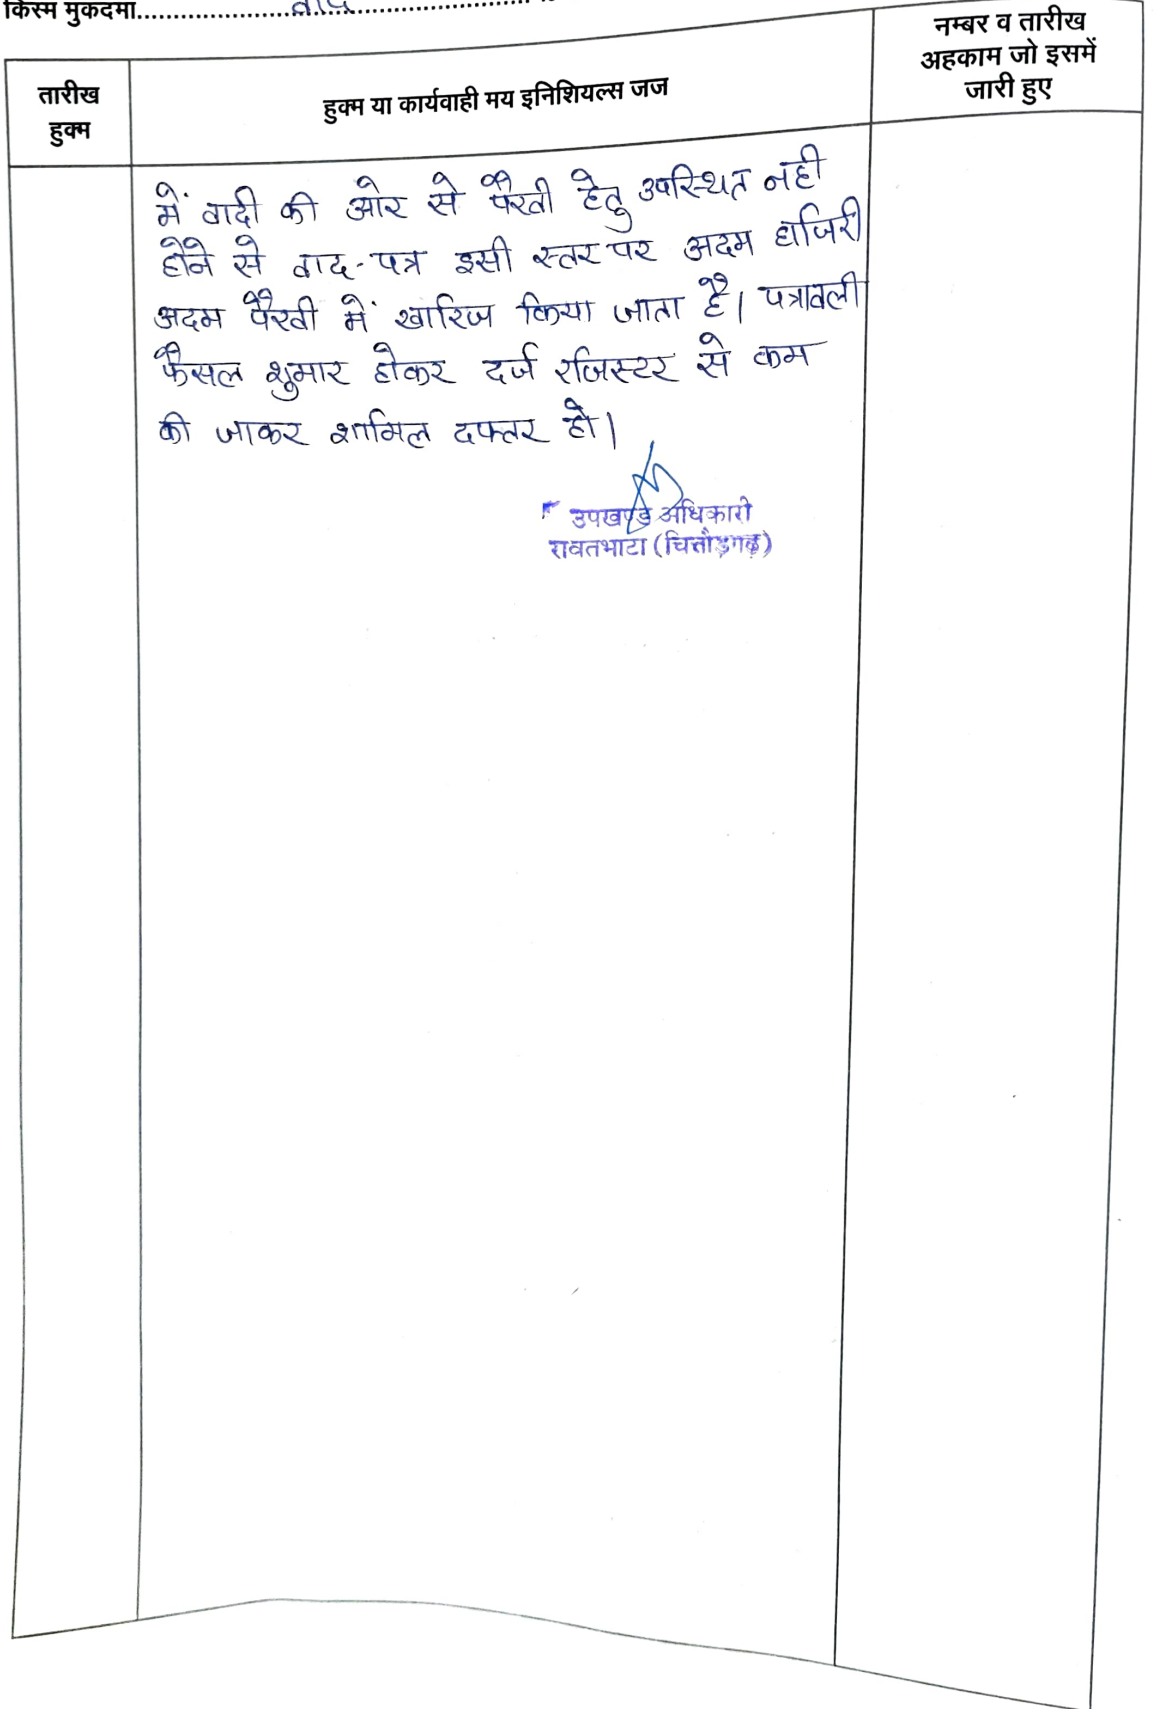 किस्म मुकदमा
तारीख
हुक्म
हुक्म या कार्यवाही मय इनिशियल्स जज
नम्बर व तारीख
अहकाम जो इसमें
जारी हुए
में वादी की ओर से पैरवी हेतु उपस्थित नही
होने से वाद-पत्र इसी स्तर पर अदम हाजिरी
अदम पैरवी में खारिज किया जाता है। पत्रावली
फैसल शुमार होकर दर्ज रजिस्टर से कम
की जाकर शामिल दफ्तर हो।
उपखण्ड अधिकारी
रावतभाटा (चित्तौड़गढ़)